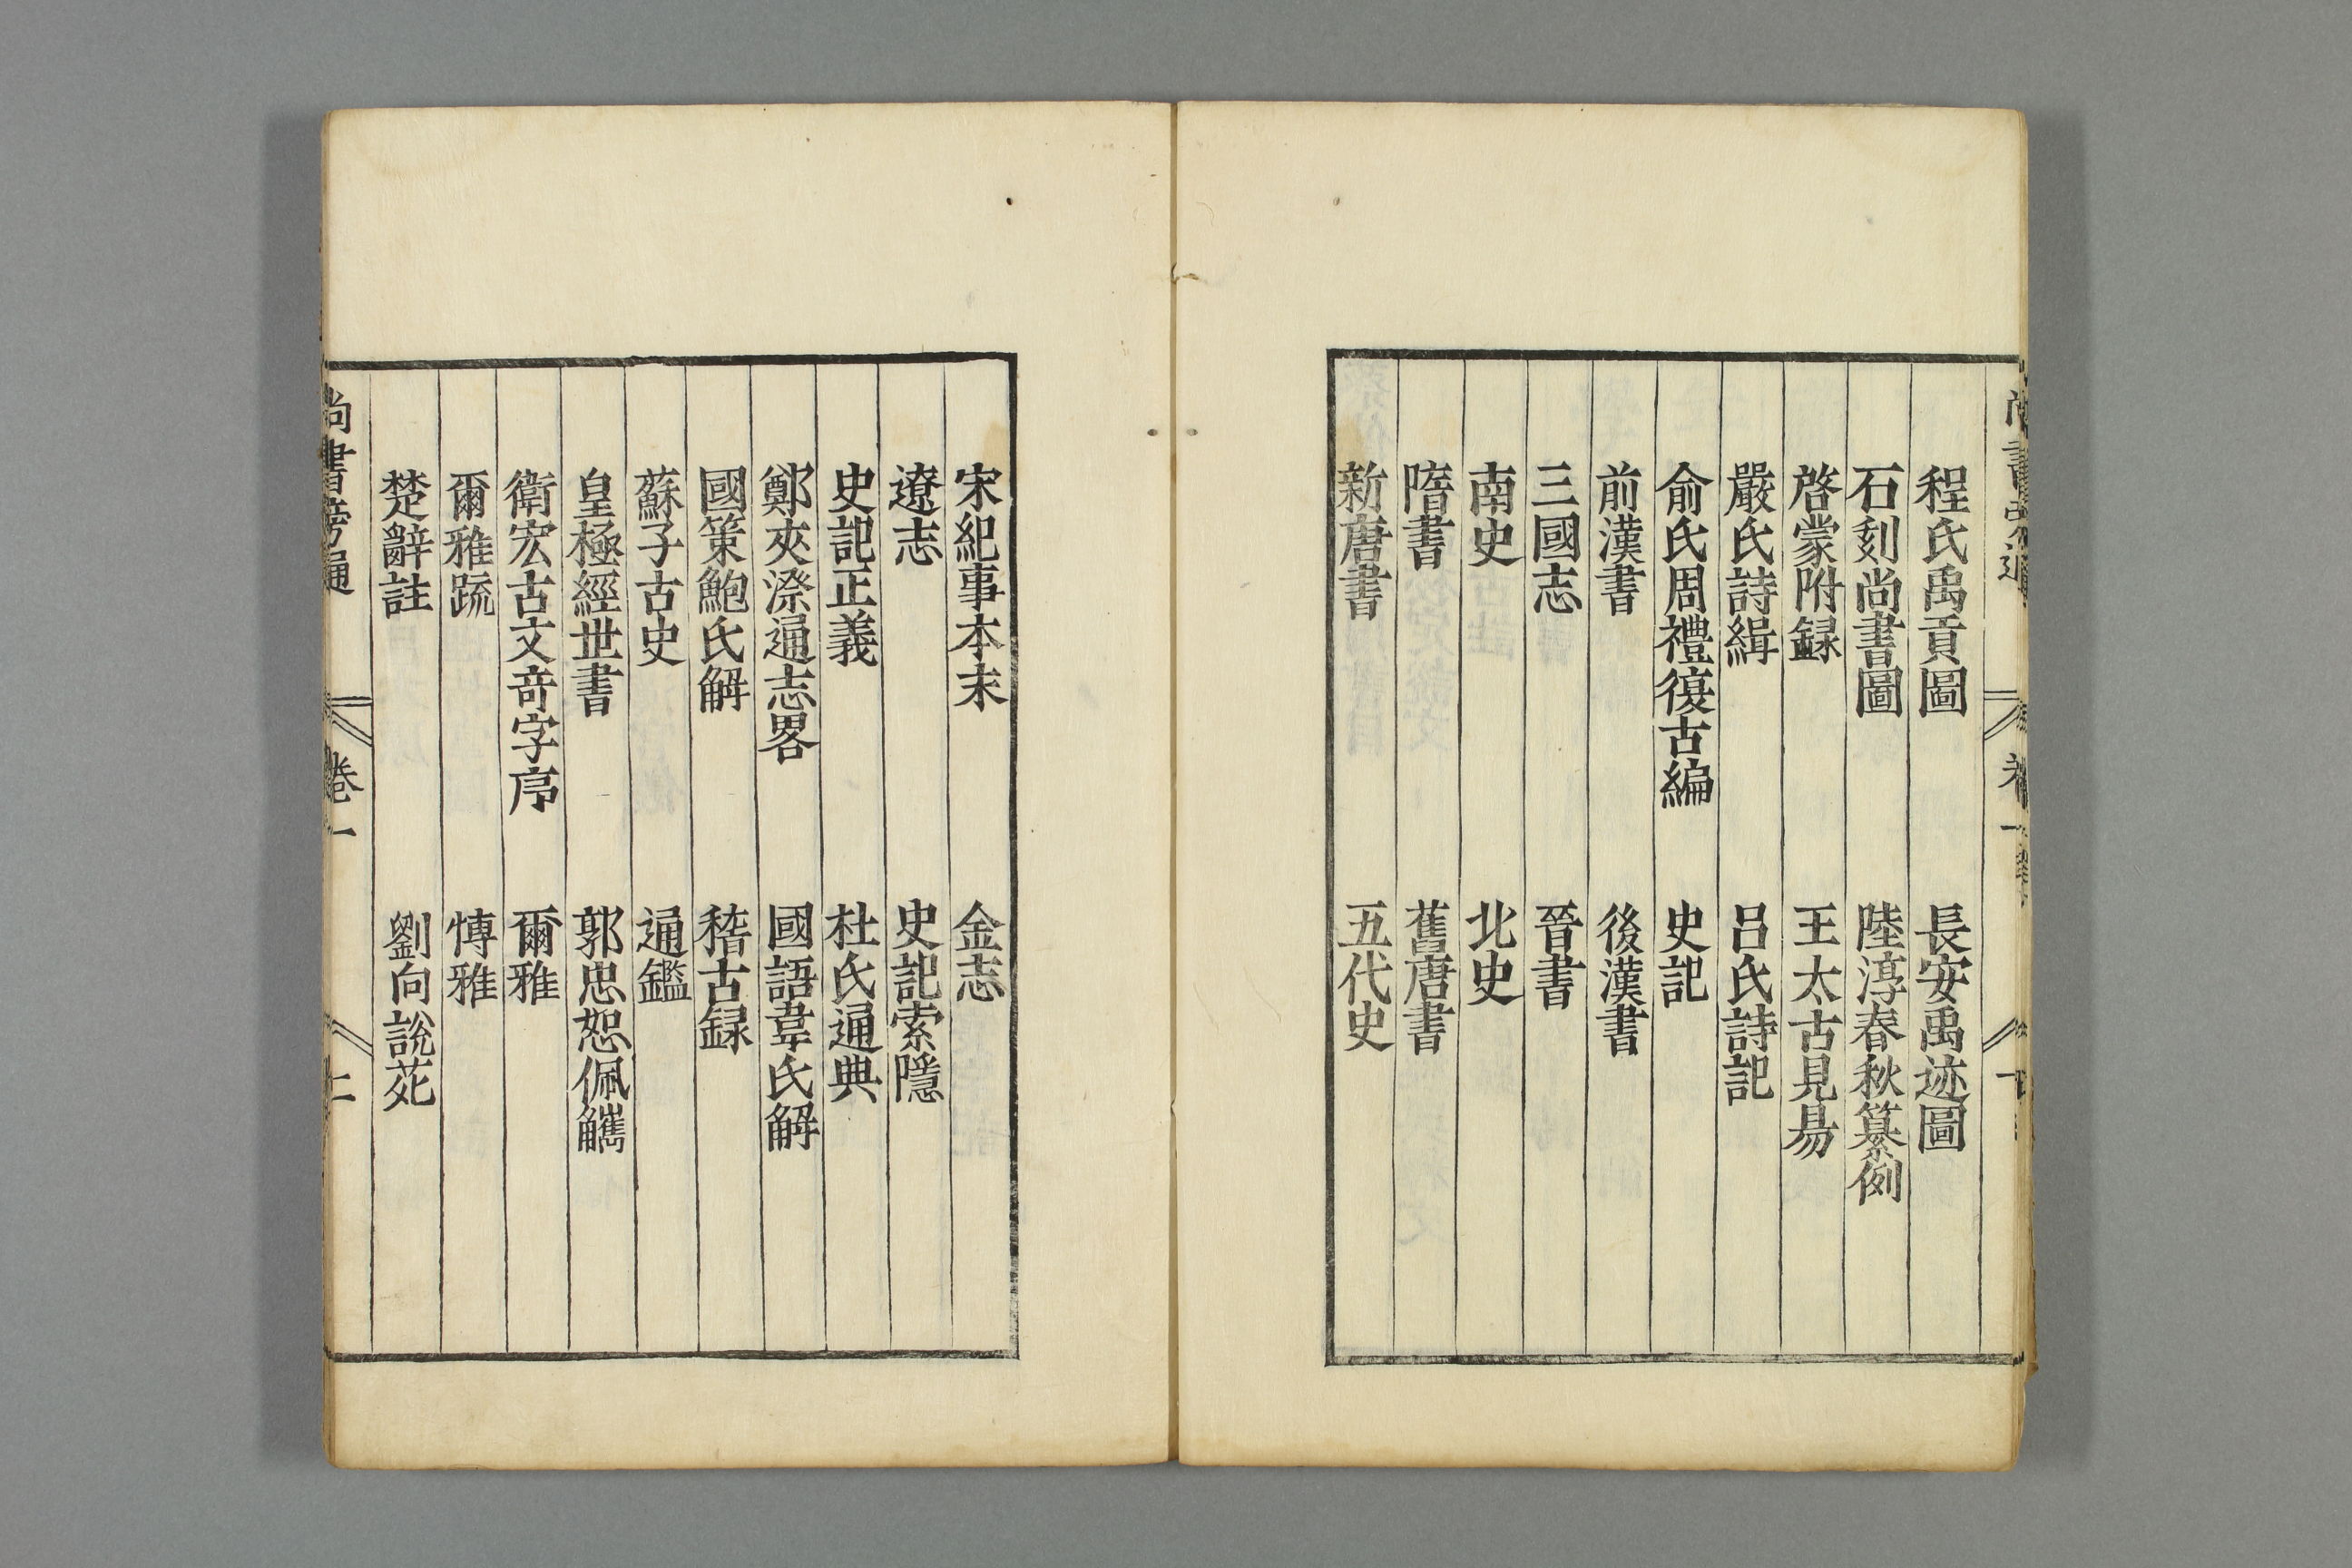 程氏禹貢圖　長安禹迹圖
石刻尚書圖　陸淳春秋纂例
啓蒙附録　王太古見易
嚴氏詩緝　呂氏詩記
俞氏周禮復古編　史記
前漢書　後漢書
三國志　晉書
南史　北史
隋書　舊唐書
新唐書　五代史
宋紀事本末　金志
遼志　史記索隱
史記正義　杜氏通典
鄭夾漈通志畧　國語韋氏解
國策鮑氏解　稽古録
蘇子古史　通鑑
皇極經世書　郭忠恕佩觿
衛宏古文奇字序　爾雅
爾雅疏　博雅
楚辭註　劉向說苑
尚書旁通　卷一　二